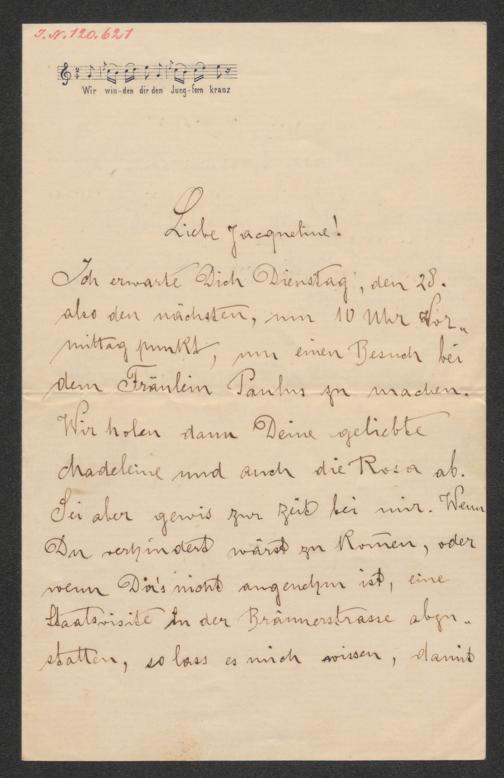 I.N. 120.621
Wir win-den dir den Jung-fern kranz
Liebe Jacqueline!
Ich erwarte Dich Dienstag, den 28.
also den nächsten, um 10 Uhr Vor„
mittag punkt, um einen Besuch bei
dem Fräulein Paulus zu machen.
Wir holen dann Deine geliebte
Madeleine und auch die Rosa ab.
Sei aber gewis zur Zeit bei mir. Wenn
Du verhindert wärst zu kom̅en, oder
wenn Dir's nicht angenehm ist, eine
Staatsvisite in der Bräunerstrasse abzu„
statten, so lass es mich wissen, damit